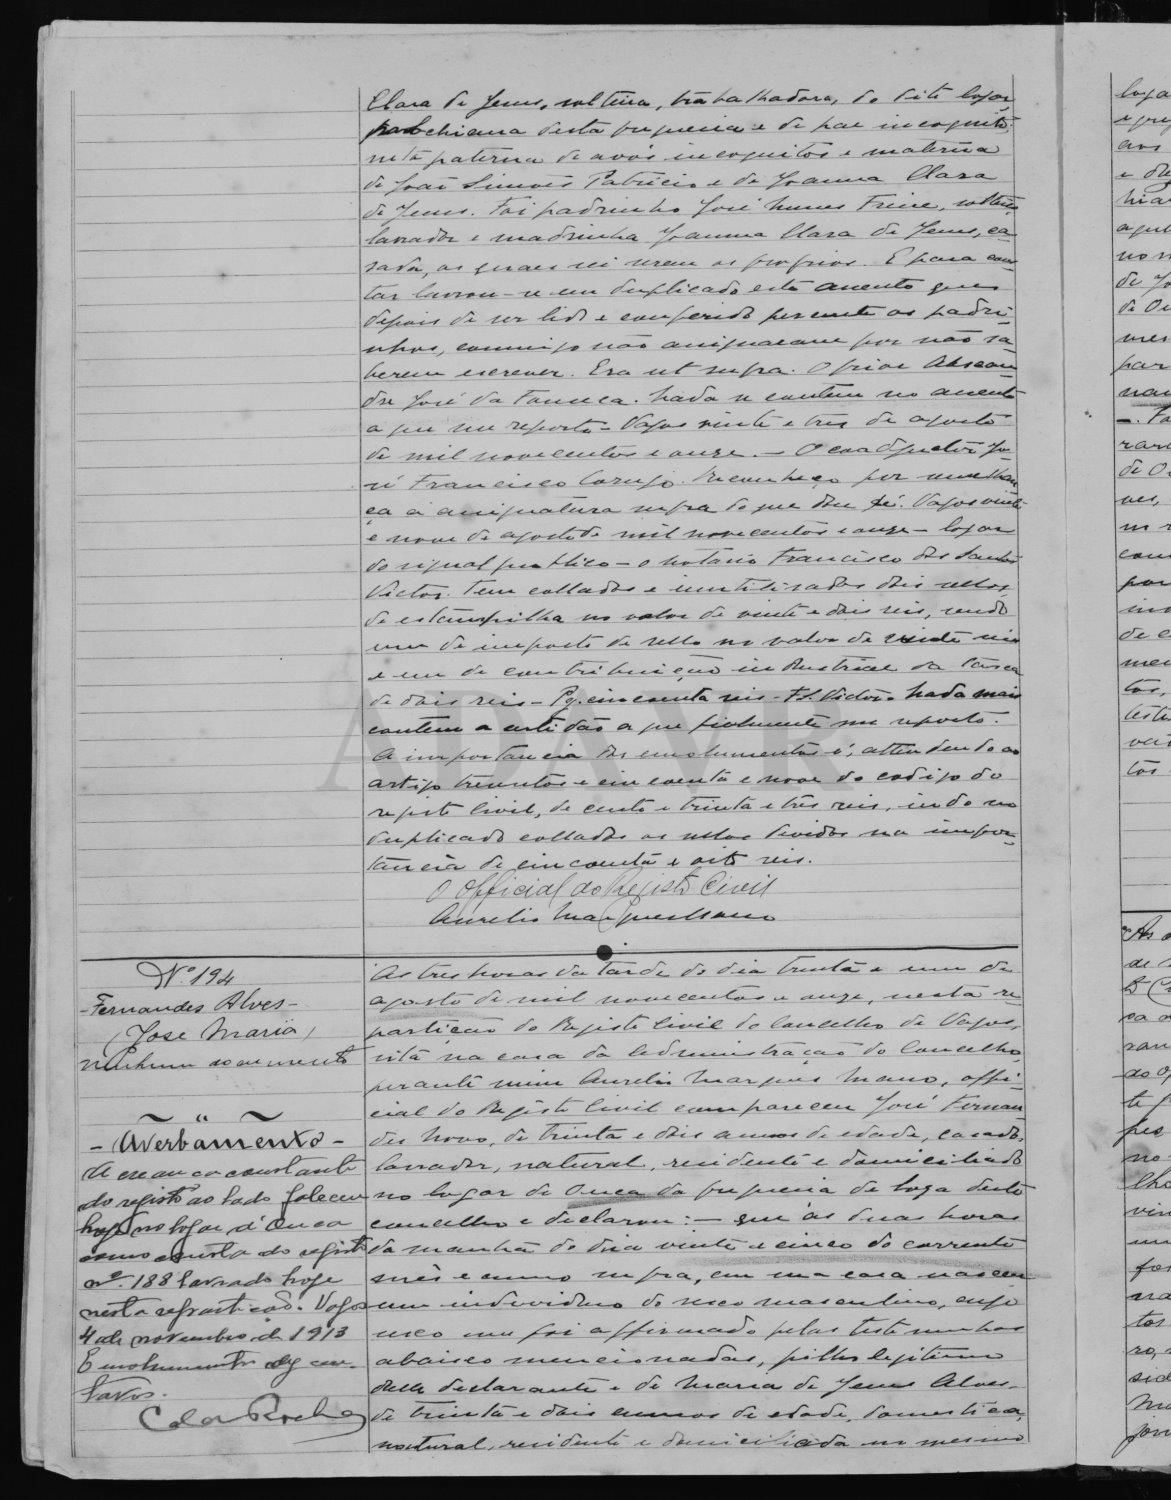 Clara de Jesus, solteira, trabalhadora, do dito logar,
parochiana desta freguesia e de pae incognito;
neta paterna de avós incognitos e materna
de João Simões Patricio e de Joanna Clara
de Jesus. Foi padrinho José Nunes Freire, solteiro,
lavrador e madrinha Joanna Clara de Jesus, ca-
sada, os quaes sei serem os proprios. E para cons-
tar lavrou-se em duplicado este assento que
depois de ser lido e conferido perante os padri-
nhos, commigo não assignaram por não sa-
berem escrever. Era ut supra. O prior Alexan-
dre José da Fonseca. Nada se contém no assento
a que me reporto - Vagos vinte e tres de agosto
de mil novecentos e onze. - O coadjuctor Jo-
sé Francisco Corujo. Reconheço por semelhan-
ça a assignatura supra do que dou fé. Vagos vinte
e nove de agosto de mil novecentos e onze - logar
do signal publico - o notario Francisco dos Santos
Victor. Tem collados e inutilisados dois sellos
de estampilha no valor de vinte e dois reis, sendo
um de imposto de sello no valor de vinte reis
e um de contribuição industrial da taxa
de dois reis - Pg. cincoenta reis - F.S. Victor. Nada mais
contém a certidão a que fielmente me reporto.
A importancia dos emolumentos é, attendendo ao
artigo trezentos e cincoenta e nove do codigo do
registo civil, de cento e trinta e tres reis, indo no
duplicado collados os sellos devidos na impor-
tancia de cincoenta e oito reis.
O Official do Registo Civil
Aurelio Marques Mano
Nº 194
Fernandes Alves -
(José Maria)
nenhum documento
~ " ~
- Averbamento -
A creança constante
do registo ao lado faleceu
hoje no logar d'Ouca
como consta do registo
nº 188 lavrado hoje
nesta repartição. Vagos
4 de novembro de 1913
Emolumentos cen-
tavos.
As tres horas da tarde do dia trinta e um de
agosto de mil novecentos e onze, nesta re-
partição do Registo Civil do Concelho de Vagos,
sita na casa da Administração do Concelho,
perante mim Aurelio Marques Mano, offi-
cial do Registo Civil compareceu José Fernan-
des Novo, de trinta e dois annos de edade, casado,
lavrador, natural, residente e domiciliado
no logar de Ouca da freguesia de Soza deste
concelho e declarou: - que ás duas horas
da manhã do dia vinte e cinco do corrente
mês e anno supra, em sua casa nasceu
um individuo do sexo masculino, cujo
sexo me foi affirmado pelas testemunhas
abaixo mencionadas, filho legitimo
delle declarante e de Maria de Jesus Alves,
de trinta e dois annos de edade, domestica,
natural, residente e domiciliada no mesmo